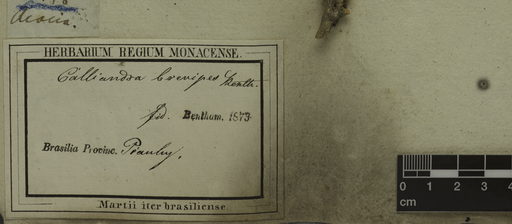 Acacia.
HERBARIUM REGIUM MONACENSE.
Calliandra brevipes Benth.
fid. Bentham. 1873
Brasilia Provinc. Piauhy,
Martii iter brasiliense.
0 1 2 3 4
cm